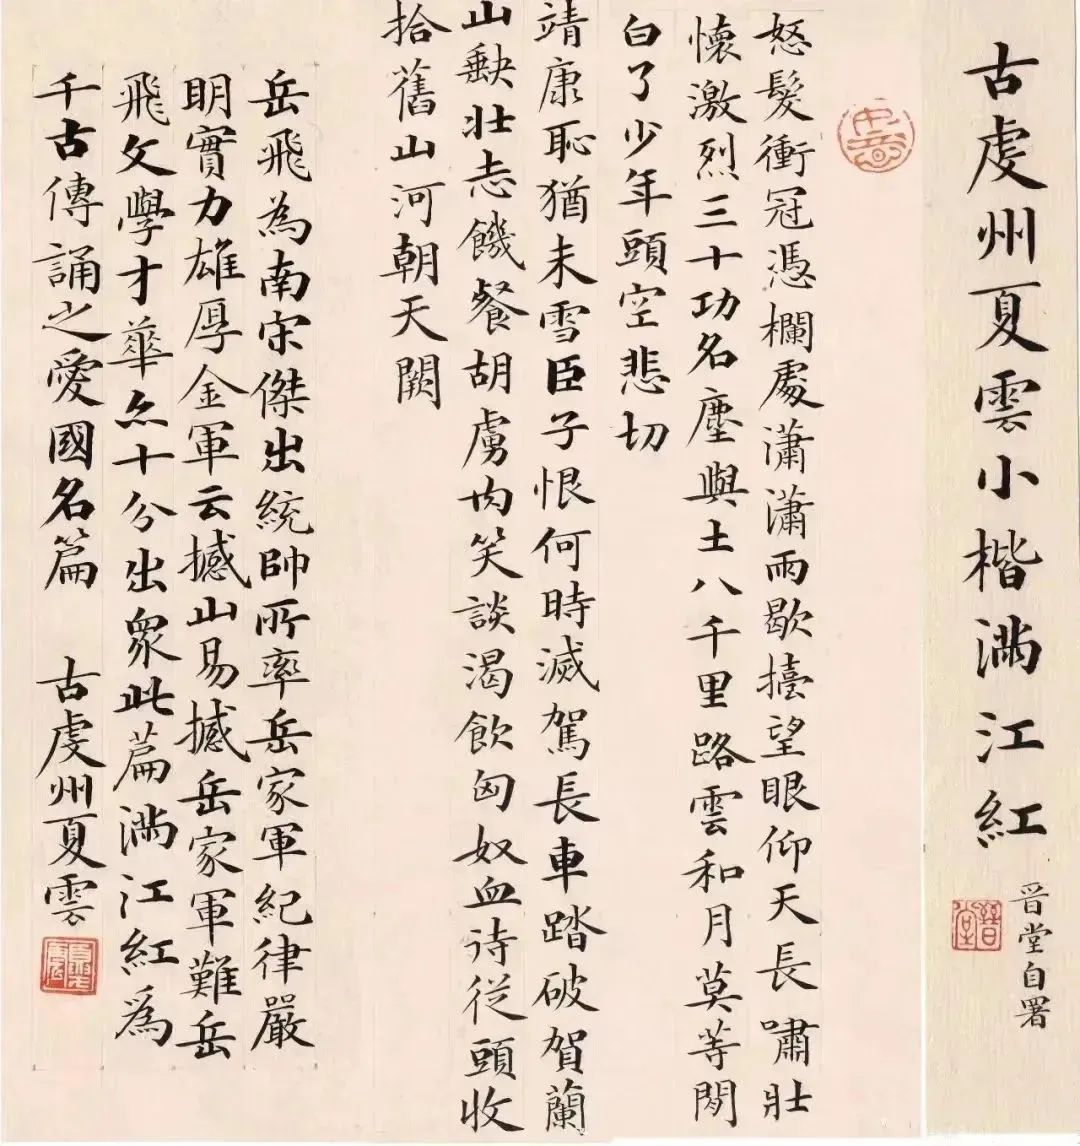 古虔州夏雲小楷滿江紅
晉堂自署
晉堂
怒髮衝冠憑欄處瀟瀟雨歇擡望眼仰天長嘯壯
懷激烈三十功名塵與土八千里路雲和月莫等閒
白了少年頭空悲切
靖康恥猶未雪臣子恨何時滅駕長車踏破賀蘭
山缺壯志饑餐胡虜肉笑談渴飲匈奴血待從頭收
拾舊山河朝天闕
岳飛為南宋傑出統帥所率岳家軍紀律嚴
明實力雄厚金軍云撼山易撼岳家軍難岳
飛文學才華亦十分出眾此篇滿江紅為
千古傳誦之愛國名篇 古虔州夏雲